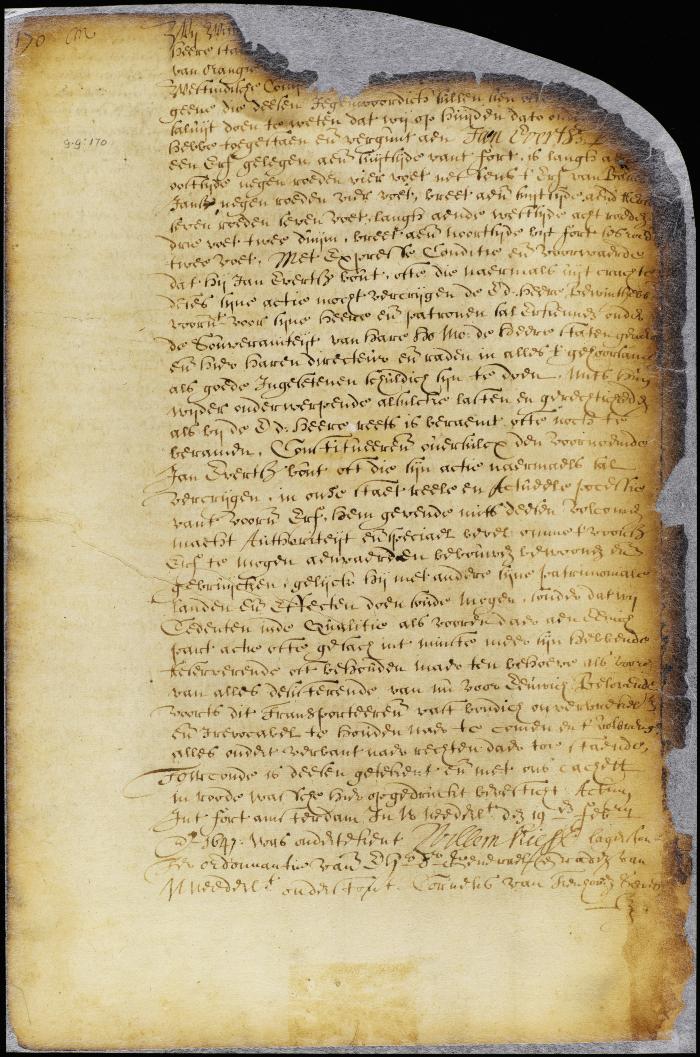 170
Wij Will
heere sta
van orangie
Westindische Comp
geene die deesen Jegenwoordich sullen sien
saluijt doen te weten dat wij op huijden dato
hebbe toegestaen en vergunt aen Jan Evertsz
9.9:170
een Erf gelegen aen suijtsijde vant fort, is langh aen
oostsijde negen roeden vier voet net lens t Erf van
Jansz negen roeden vier voet, breet aen suijtsijde
seven roeden seven voet, langh aende westsijde acht roeden
drie voet twee duijm, breet aen noortsijde bijt fort ses roed
twee voet. Met Expresse Conditie en Voorwaerde
dat hij Jan Evertsz bout, ofte die naermals uijt cracht
deses sijne actie mocht vercrijgen de E d. Heere Bewinthebb
voornt voor sijne heere en patronen sal Erkennen onder
de Souveraniteijt van hare Ho Mo: de heere staten
en hier haren directeur en raden in alles t gehoorsam
als goede Ingesetenen schuldich sijn te doen, mits
wijder onderwerpende alsulcke lasten en gerechticheden
als bij de E d: Heere reets is beraemt ofte noch te
beramen. Constitueeren oversulcx den voornoemde
Jan Evertsz bout oft die sijn actie naermaels sal
vercrijgen, in onse staet reele en Actueele possessie
vant voorn Erf, hem gevende mits deesen volcomen
macht Authoriteijt en speciael bevel omme t voorsz
Erf te mogen aenvaerden bebouwen bewoonen en
gebruijcken, gelijck hij met andere sijne patrimoniale
landen en Effecten doen soude mogen, sonder dat wij
Cedenten inde Qualitie als vooren daer aen Eenich
part actie ofte gesach int minste meer sijn hebbende
reserverende oft behouden maer ten behoeve als voore
van alles desisterende van nu voor Eeuwich, Belovende
voorts dit Transporteeren vast bondich onverbreke
en Irevocabel te houden naer te comen en t volbreng
alles ondert verbant naer rechten daer toe staende,
T'oirconde is deesen getekent en met ons cachett
in roode wassche hier opgedruckt bevesticht. Actum
Int fort amsterdam In N: neederlt den 19en Feb
Ao 1647. was ondertekent Willem Kieft lager stont
Ter ordonnantie van E Hr Dr Generael En raden van
N Neederlt onderstont, Cornelis van Tienhoven